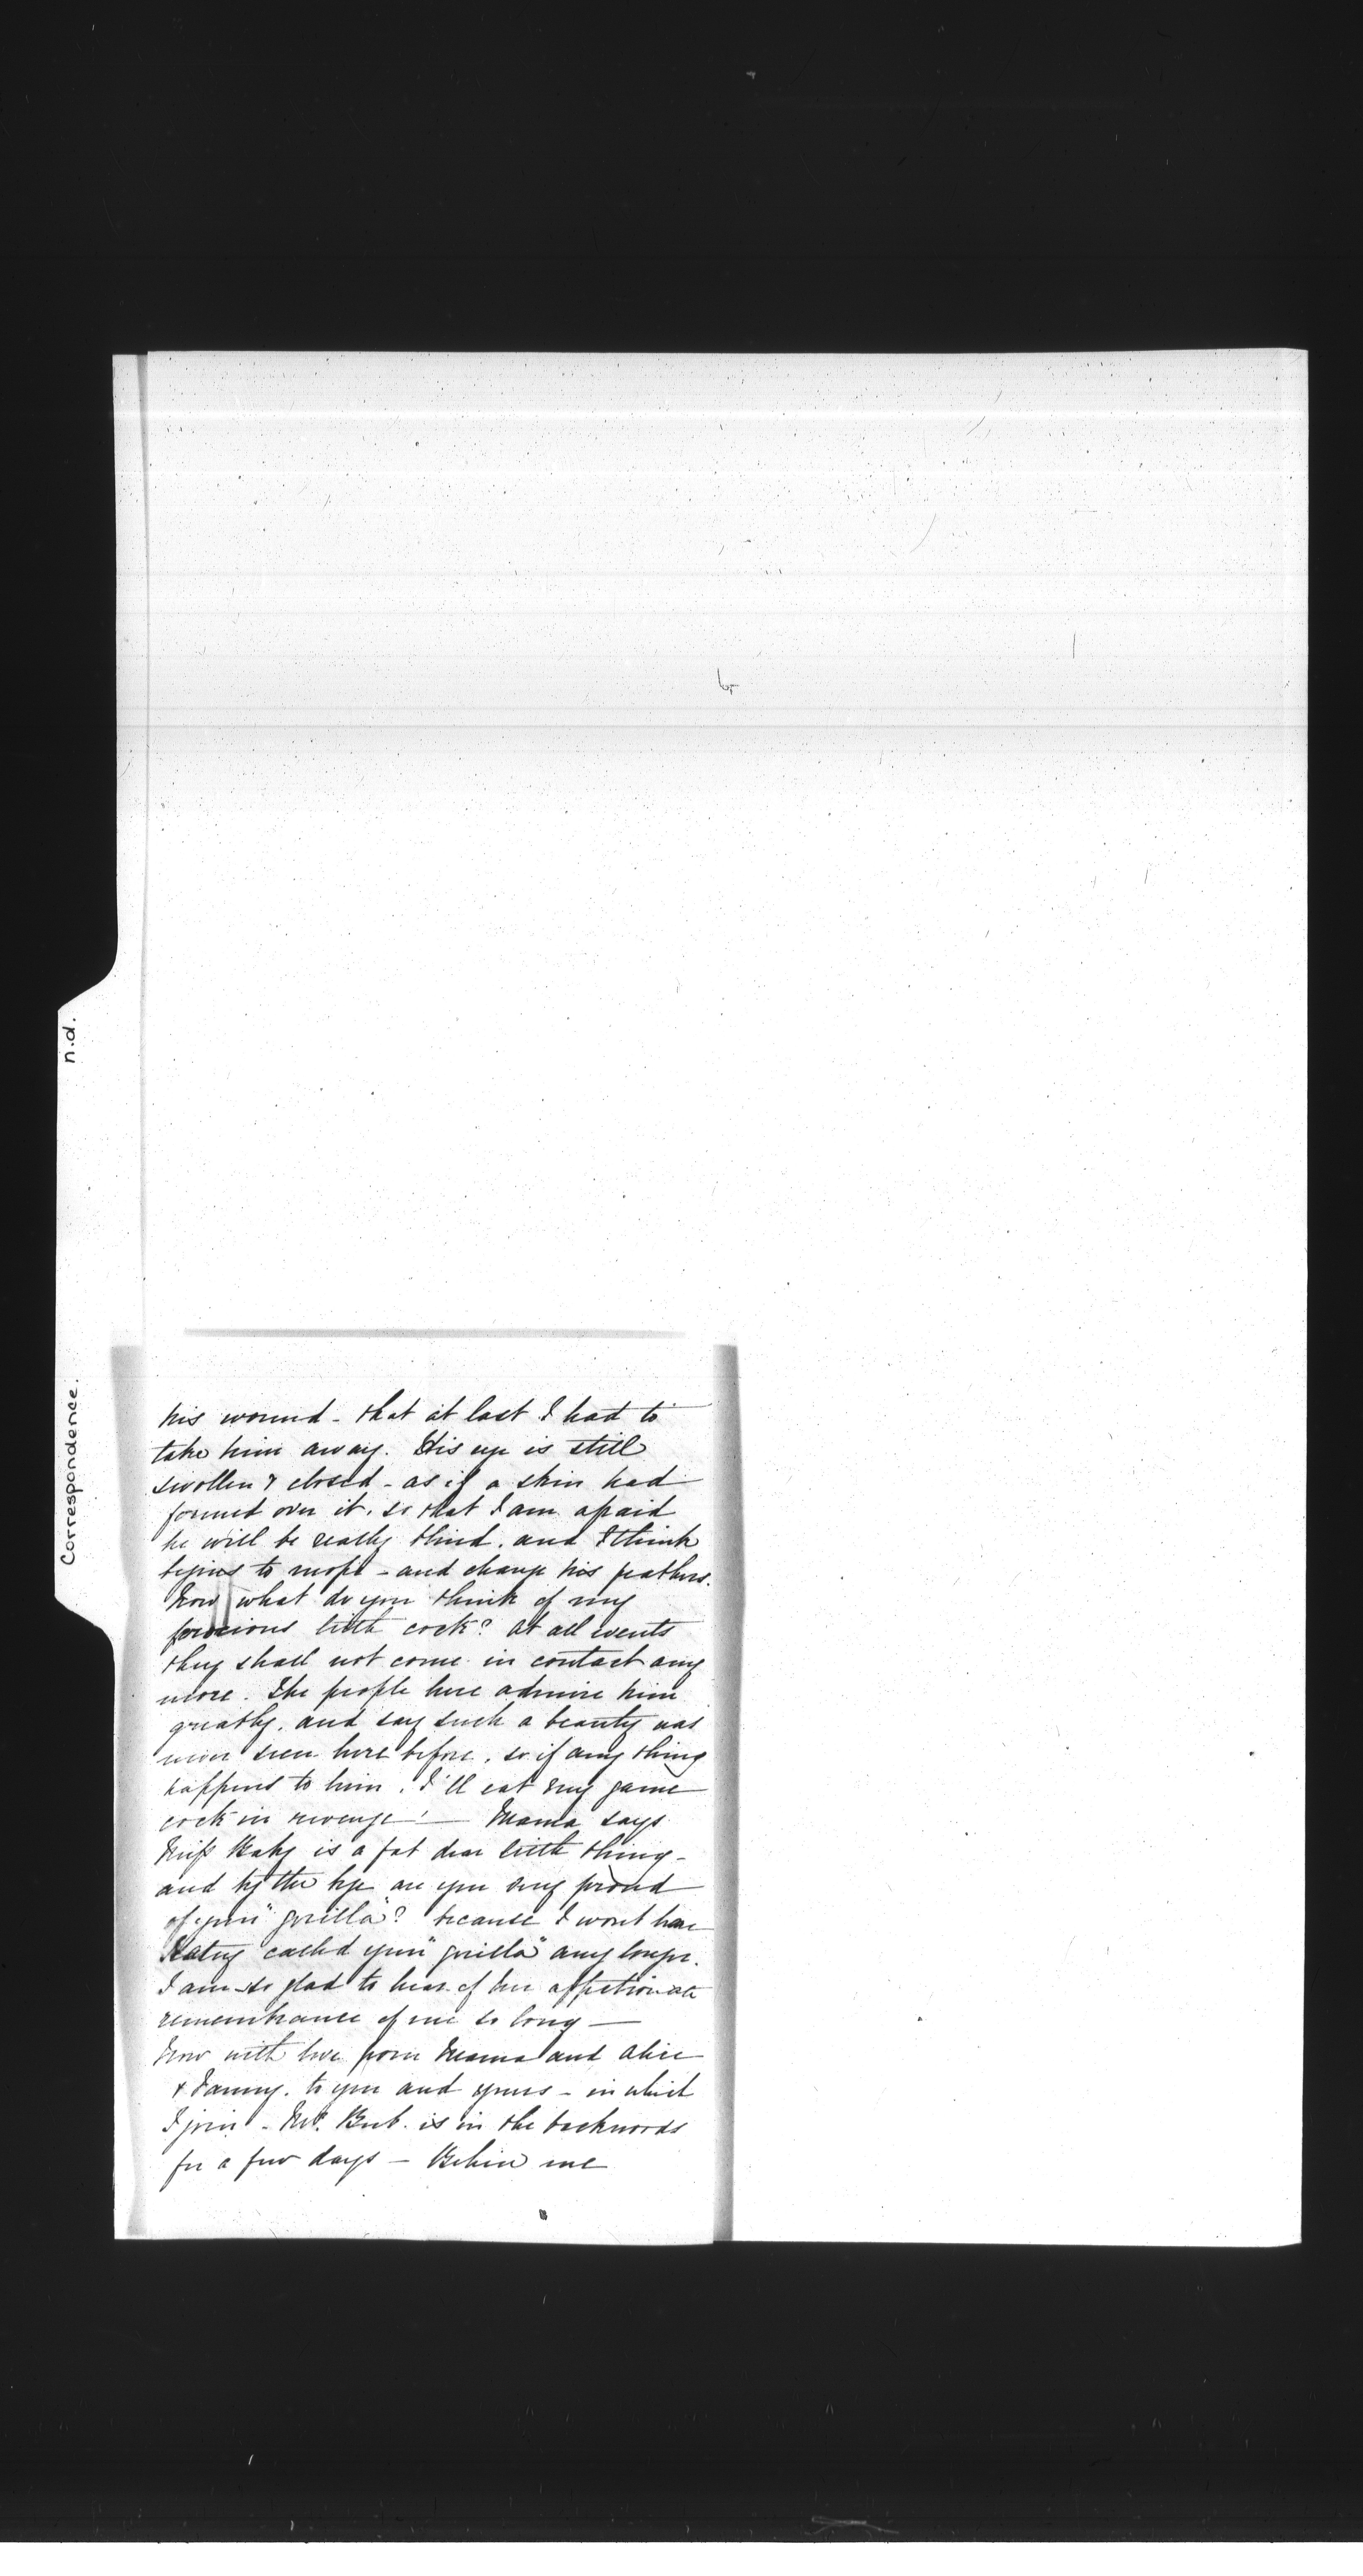 Correspondence. n.d.
his wound - that at last I had to
take him away. His eye is still
swollen & closed - as if a skin had
formed over it. so that I am afraid
he will be really blind. and I think
begins to mope - and change his feathers.
Now what do you think of my
ferocious little cock? At all events
they shall not come in contact any
more. The people here admire him
greatly. and say such a beauty was
never seen here before. so if any thing
happens to him. I'll eat my game
cock in revenge! — Mama says
Miss Baby is a fat dear little thing -
and by the bye are you very proud
of your "gorilla"? because I wont have
Katey called your "gorilla" any longer.
I am so glad to hear of her affectionate
remembrance of me so long —
Now with love from Mama and Alice
& Fanny. to you and yours - in which
I join - Mr. is in the backwoods
for a few days — Believe me